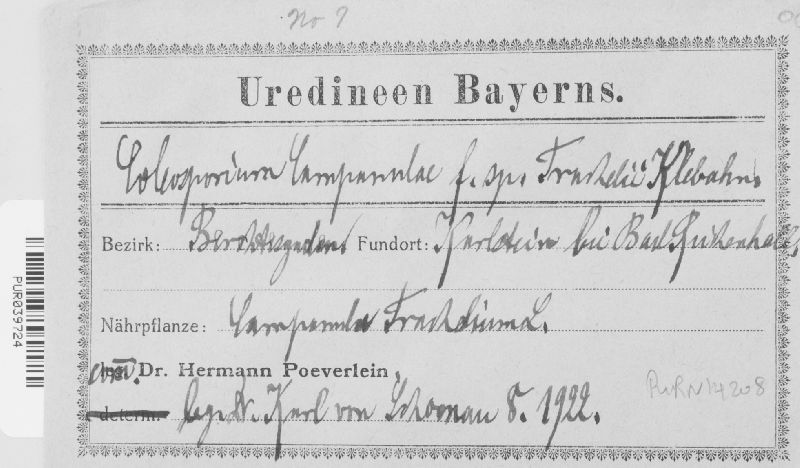 No 7
Uredineen Bayerns.
Coleosporium Campanulae f. sp. Trachelii Klebahn.
Bezirk: Berchtesgaden. Fundort: Karlstein bei Bad Reichenhall,
Nährpflanze: Campanula Trachelium L.
com. Dr. Hermann Poeverlein
determ. leg. Dr. Karl von Schoenau 8. 1922.
PUR039724